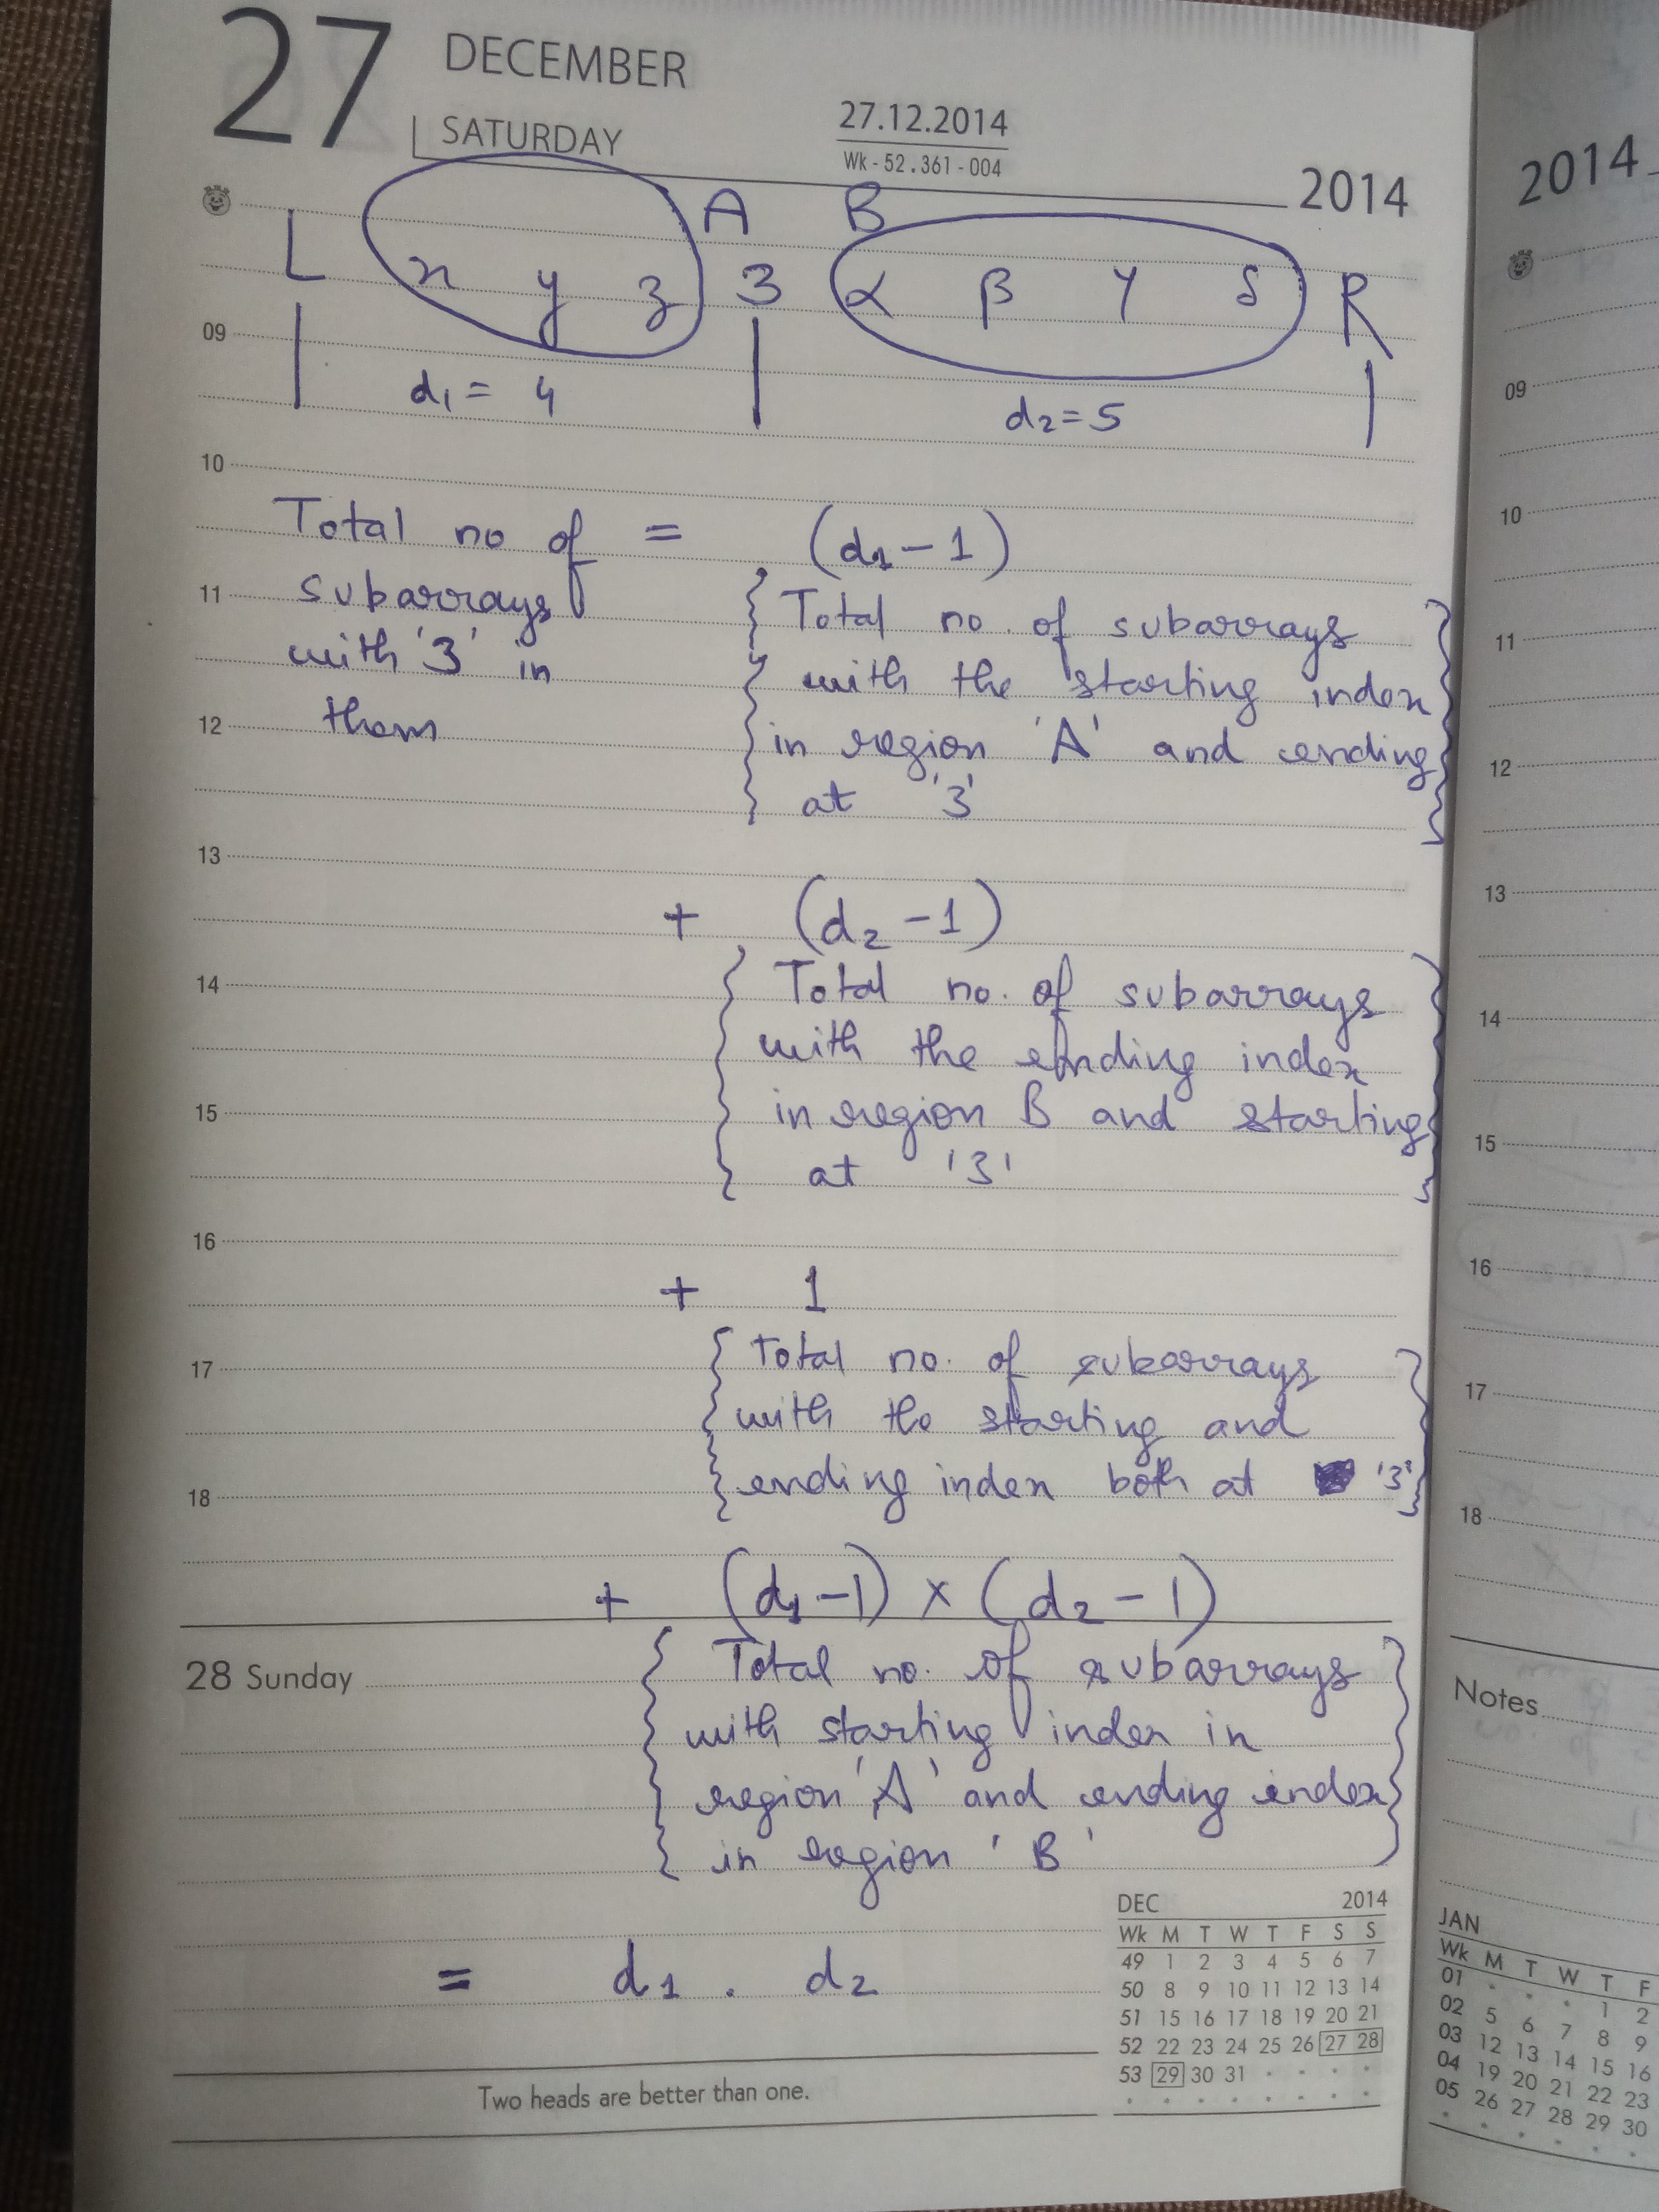 27 DECEMBER
SATURDAY
27.12.2014
Wk - 52 . 361 - 004
2014
A B
L x y z 3 α β γ δ R
09
d₁ = 4
d₂ = 5
10
Total no of = (d₁ - 1)
11 subarrays
with '3' in
12 them
{ Total no. of subarrays
with the starting index
in region 'A' and ending
at '3' }
13
+ (d₂ - 1)
14 { Total no. of subarrays
with the ending index
15 in region B and starting
at '3' }
16
+ 1
17 { Total no. of subarrays
with the starting and
18 ending index both at '3' }
+ (d₁ - 1) × (d₂ - 1)
28 Sunday
{ Total no. of subarrays
with starting index in
region 'A' and ending index
in region 'B' }
= d₁ . d₂
DEC 2014
Wk M T W T F S S
49 1 2 3 4 5 6 7
50 8 9 10 11 12 13 14
51 15 16 17 18 19 20 21
52 22 23 24 25 26 27 28
53 29 30 31
Two heads are better than one.
2014
09
10
11
12
13
14
15
16
17
18
Notes
JAN
Wk M T W T F
01 1 2
02 5 6 7 8 9
03 12 13 14 15 16
04 19 20 21 22 23
05 26 27 28 29 30